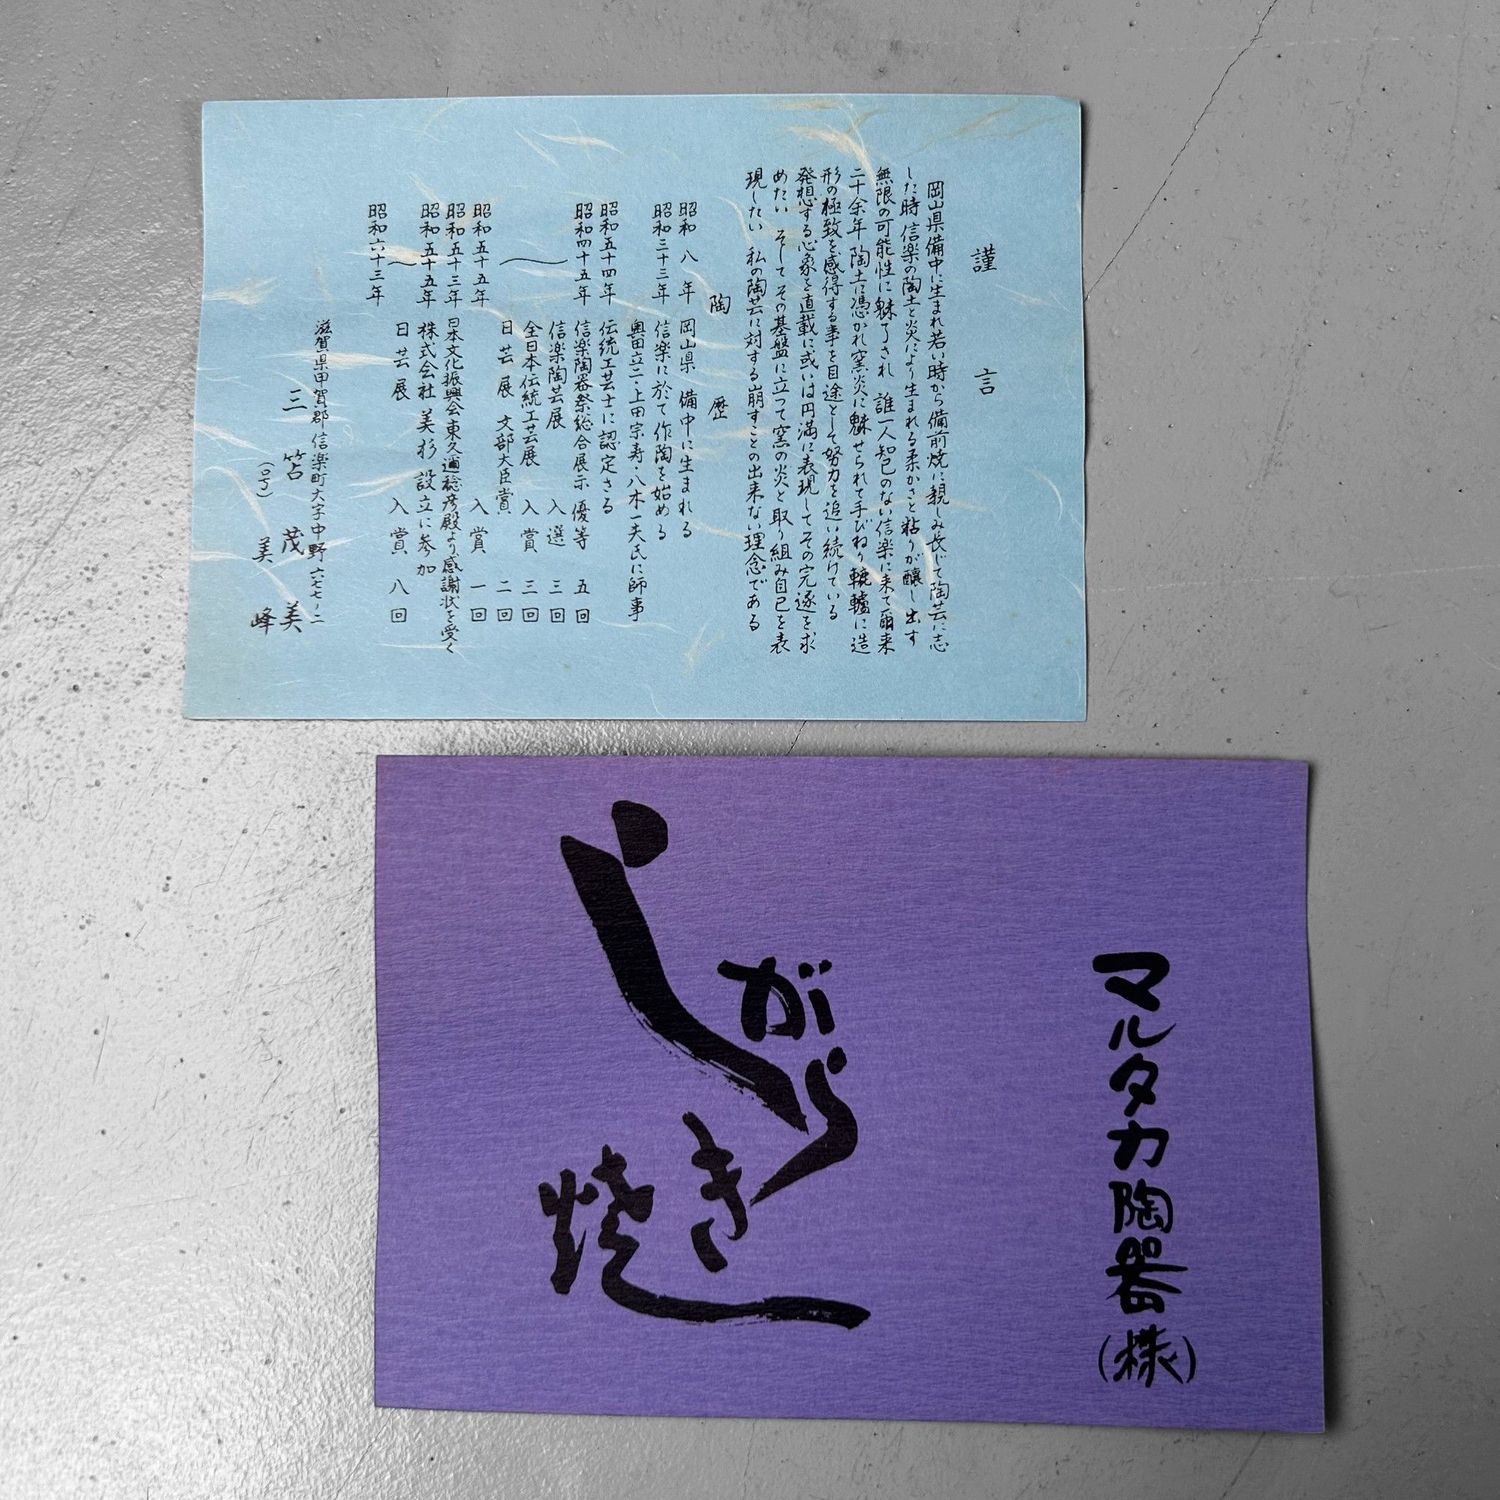 謹言
岡山県備中に生まれ若い時から備前焼に親しみ長じて陶芸に志
した時 信楽の陶土と炎により生まれる柔かさと粘りが醸し出す
無限の可能性に魅了され 誰一人知己のない信楽に来て爾来
二十余年 陶土に憑かれ窯炎に魅せられて手びねり轆轤に造
形の極致を感得する事を目途として努力を追い続けている
発想する心象を直截に或いは円満に表現してその完遂を求
めたい そして その基盤に立つて窯の炎と取り組み自己を表
現したい 私の陶芸に対する崩すことの出来ない理念である
陶歴
昭和八年 岡山県 備中に生まれる
昭和三十三年 信楽に於て作陶を始める
奥田立二・上田宗寿・八木一夫氏に師事
昭和五十四年 伝統工芸士に認定さる
昭和四十五年 信楽陶器祭総合展示 優等 五回
信楽陶芸展 入選 三回
全日本伝統工芸展 入賞 三回
日芸展 文部大臣賞 二回
昭和五十五年 入賞 一回
昭和五十三年 日本文化振興会東久邇稔彦殿より感謝状を受く
昭和五十五年 株式会社 美杉 設立に参加
日芸展 入賞 八回
昭和六十三年
滋賀県甲賀郡信楽町大字中野六七七ノ二
三笘茂美
(号) 美峰
マルタカ陶器(株)
しがらき焼